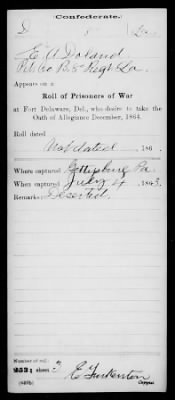 Confederate.
D 8 La.
E A Doland
Pvt Co B. 8" Regt La.
Appears on a
Roll of Prisoners of War
at Fort Delaware, Del., who desire to take the
Oath of Allegiance December, 1864.
Roll dated
Not dated 186 .
Where captured Gettysburg Pa
When captured July 4 1863.
Remarks: Deserted.
Number of roll:
253; sheet 3
(649b) Copyist.